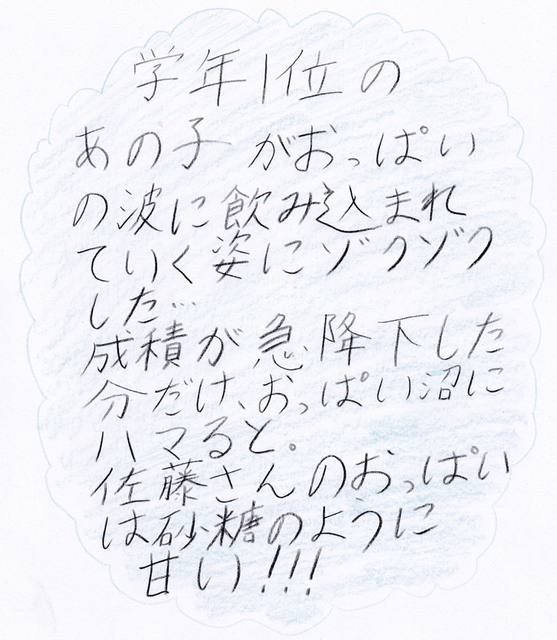 学年1位の
あの子がおっぱい
の波に飲み込まれ
ていく姿にゾクゾク
した…
成積が急降下した
分だけ、おっぱい沼に
ハマると。
佐藤さんのおっぱい
は砂糖のように
甘い!!!